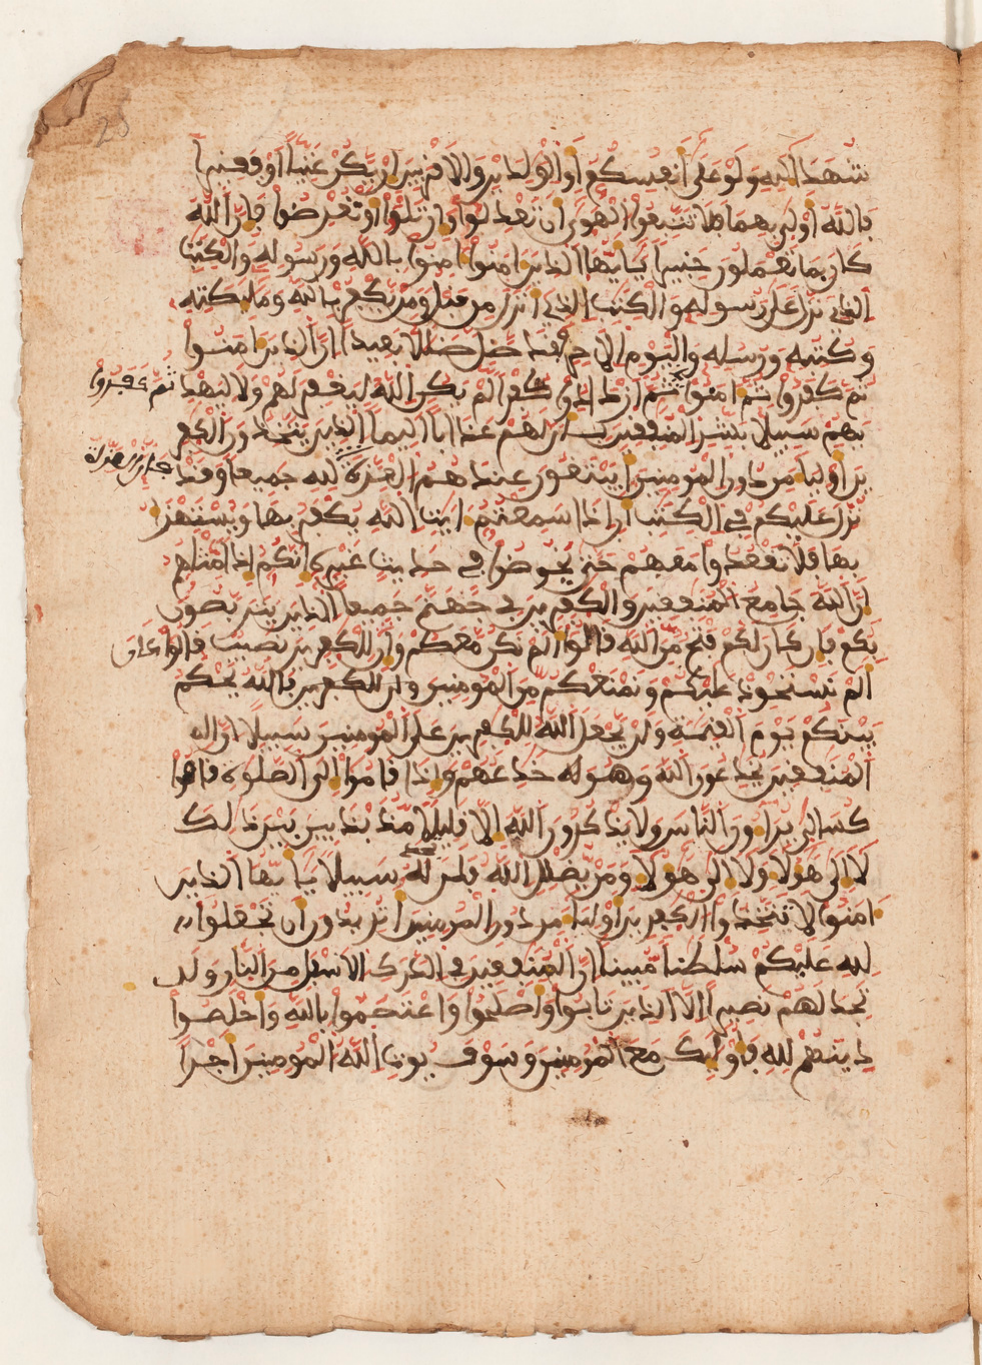 شهدا لله ولو على انفسكم او الولدين والاقربين ان يكن غنيا او فقيرا
فالله اولى بهما فلا تتبعوا الهوى ان تعدلوا وان تلوا او تعرضوا فان الله
كان بما تعملون خبيرا يايها الذين امنوا امنوا بالله ورسوله والكتب
الذي نزل على رسوله والكتب الذي انزل من قبل ومن يكفر بالله ومليكته
وكتبه ورسله واليوم الاخر فقد ضل ضللا بعيدا ان الذين امنوا
ثم كفروا ثم امنوا ثم ازدادوا كفرا لم يكن الله ليغفر لهم ولا ليهد
ثم كفروا
يهم سبيلا بشر المنفقين بان لهم عذابا اليما الذين يتخذون الكفر
ين اوليا من دون المومنين ايبتغون عندهم العزة لله جميعا وقد
فان العزة
نزل عليكم في الكتب ان اذا سمعتم ايت الله يكفر بها ويستهزا
بها فلا تقعدوا معهم حتى يخوضوا في حديث غيره انكم اذا مثلهم
ان الله جامع المنفقين والكفرين في جهنم جميعا الذين يتربصون
بكم فان كان لكم فتح من الله قالوا الم نكن معكم وان للكفرين نصيب قالوا
كان
الم نستحوذ عليكم ونمنعكم من المومنين وان للكفرين فالله يحكم
بينكم يوم القيمة ولن يجعل الله للكفرين على المومنين سبيلا ان اله
المنفقين يخدعون الله وهو له خدعهم واذا قاموا الى الصلوة قاموا
كسالى يراون الناس ولا يذكرون الله الا قليلا مذبذبين بين ذلك
لا الى هولا ولا الى هولا ومن يضلل الله فلن له سبيلا يايها الذين
تجد
امنوا لا تتخذوا الكفرين اوليا من دون المومنين اتريدون ان تجعلوا
لله عليكم سلطنا مبينا ان المنفقين في الدرك الاسفل من النار ولن
تجد لهم نصيرا الا الذين تابوا واصلحوا واعتصموا بالله واخلصوا
دينهم لله فاوليك مع المومنين وسوف يوت الله المومنين اجرا